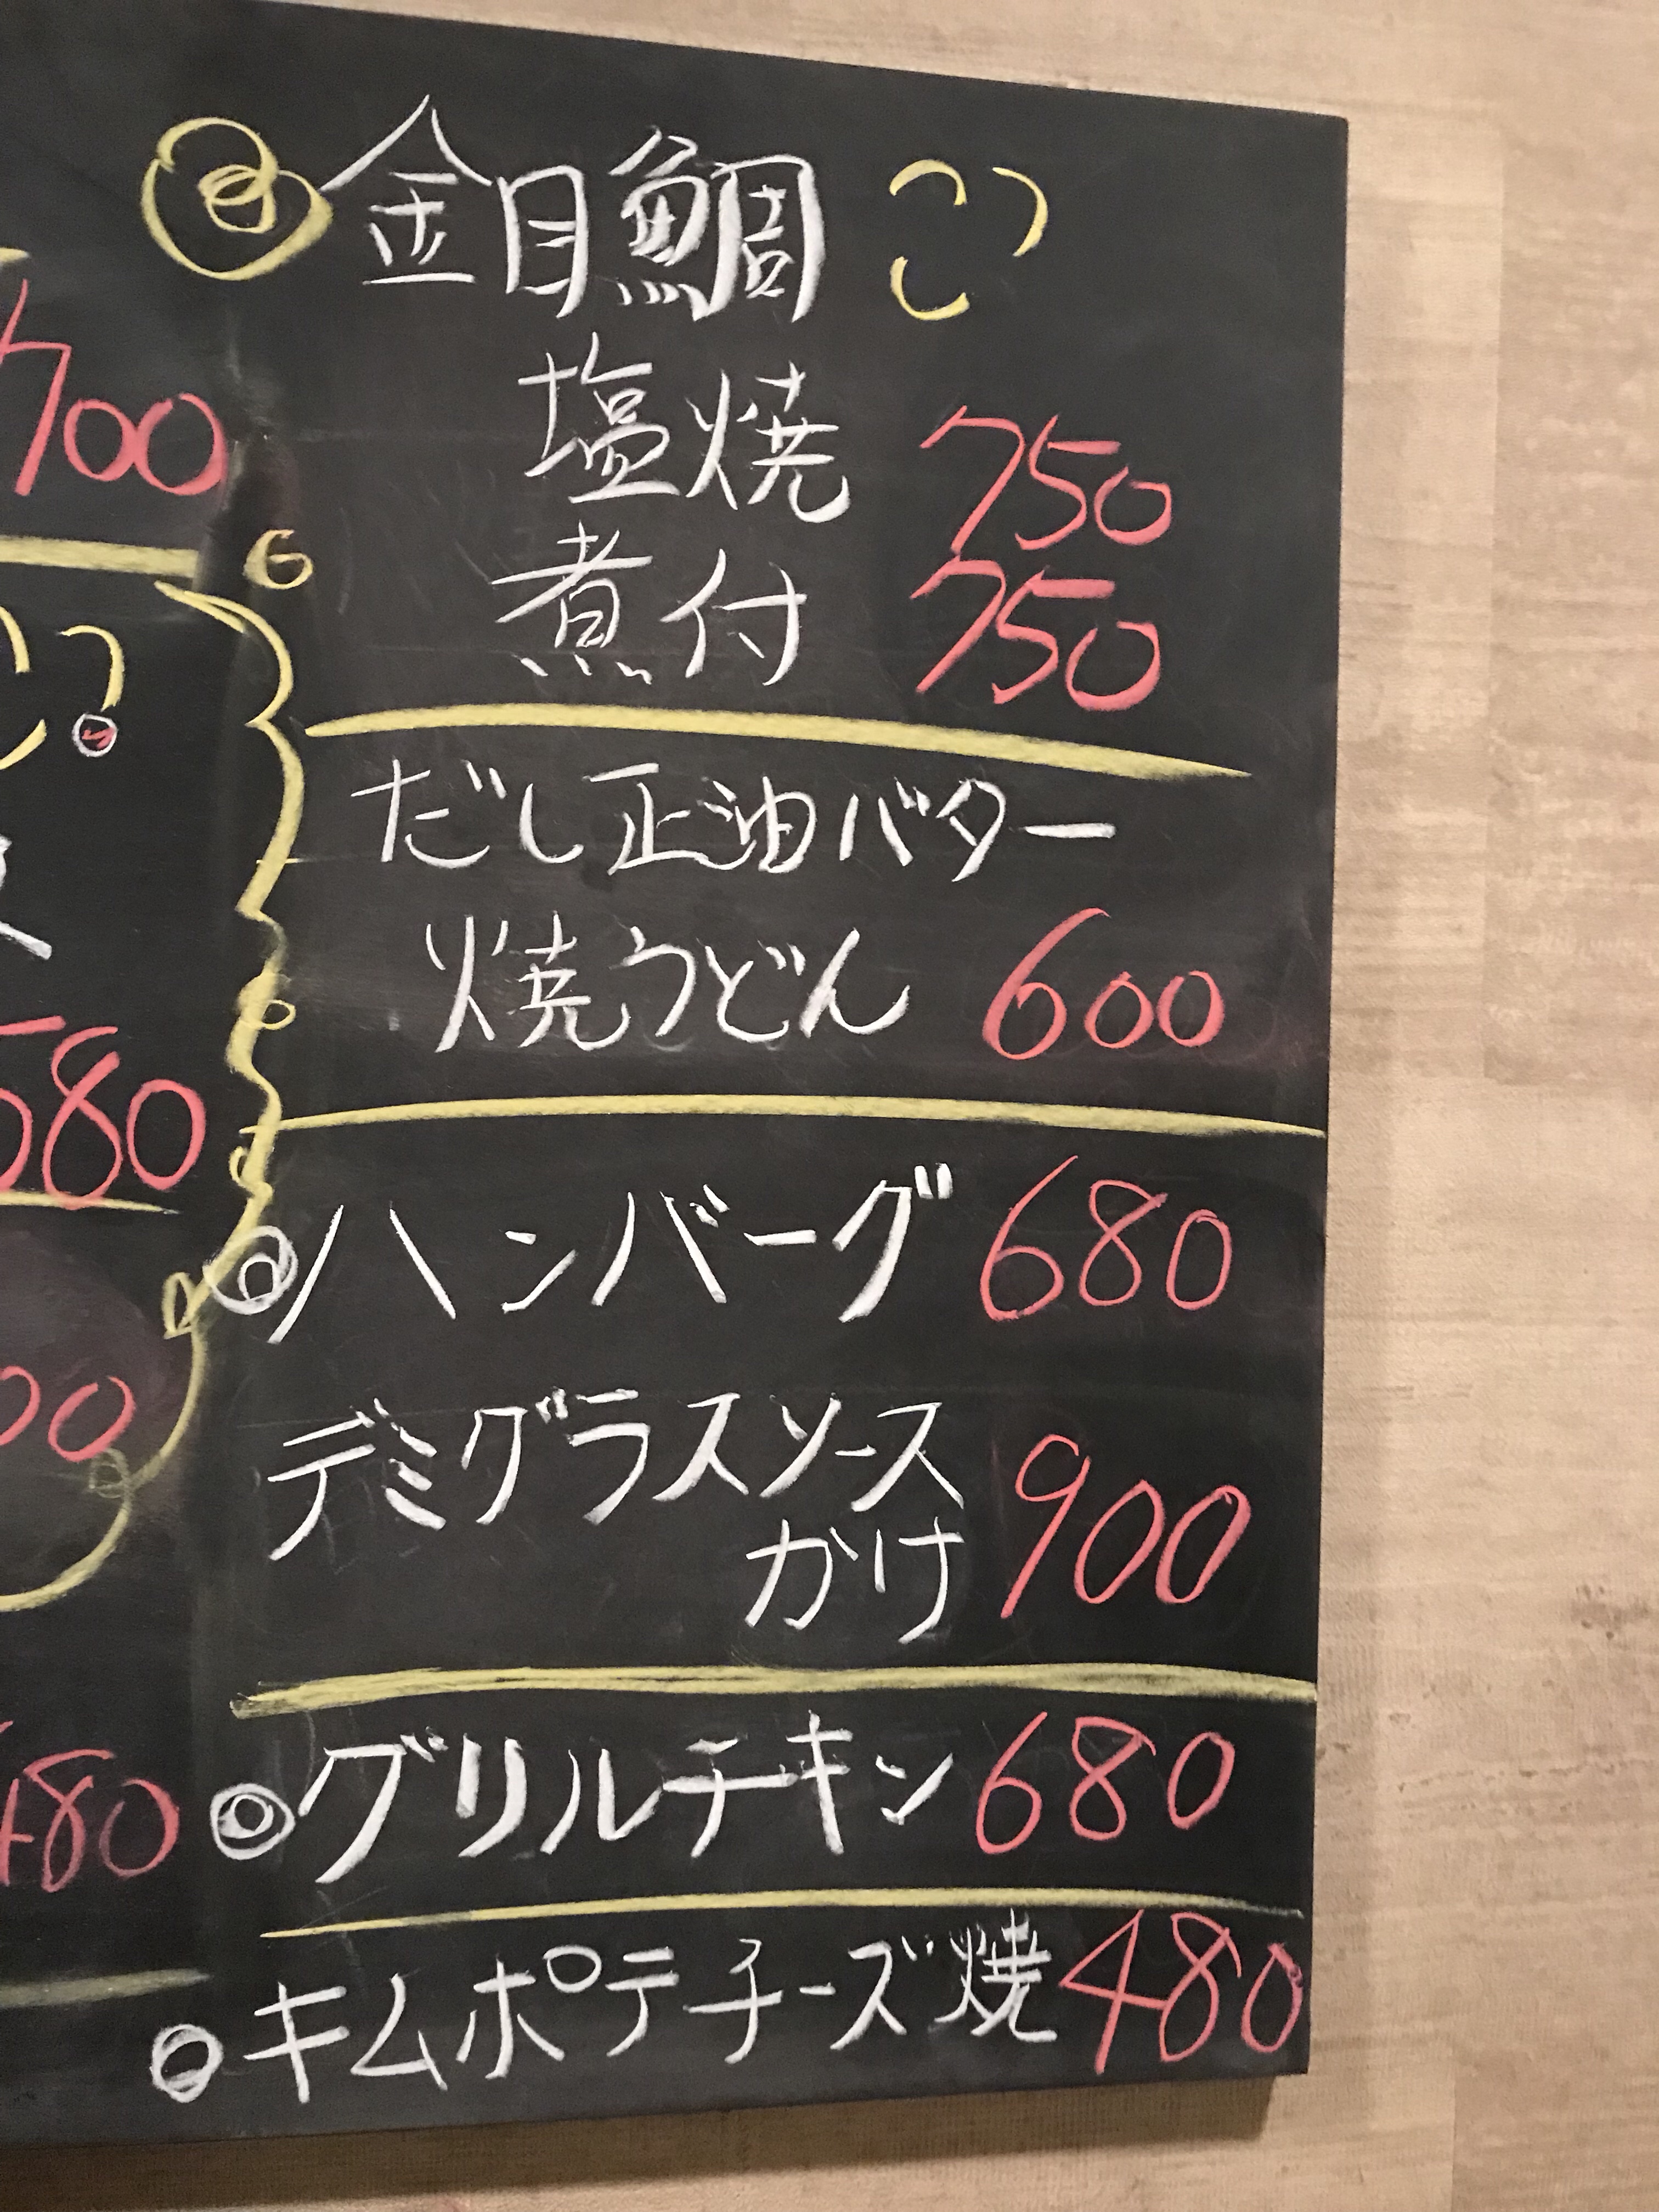 金目鯛
塩焼 750
煮付 750
だし正油バター
焼うどん 600
ハンバーグ 680
デミグラスソース
かけ 900
グリルチキン 680
キムポテチーズ焼 480
700
580
00
480